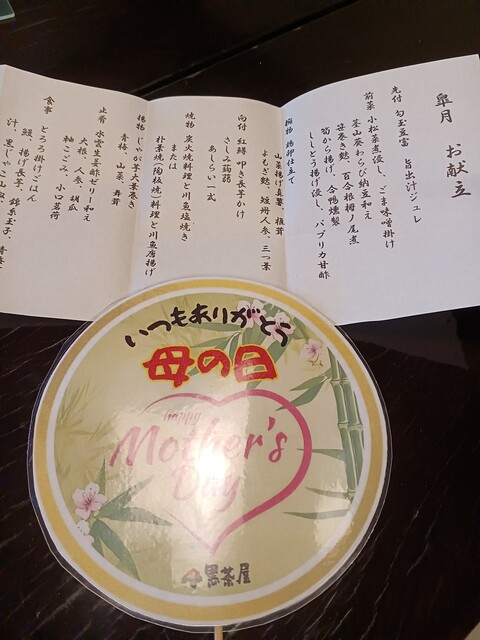 皐月 お献立
先付 勾玉豆富 旨出汁ジュレ
前菜 小松菜煮浸し、ごま味噌掛け
茎山葵わらび納豆和え
笹巻き麩、百合根梅ノ尾煮
筍から揚げ、合鴨燻製
ししとう揚げ浸し、パプリカ甘酢
椀物 鶏卵仕立て
山菜揚げ真薯、椎茸
よもぎ麩、短冊人参 三つ葉
向付 紅鱒 叩き長芋かけ
さしみ蒟蒻
あしらい一式
焼物 炭火焼料理と川魚塩焼き
または
朴葉焼(陶板焼)料理と川魚唐揚げ
揚物 じゃが芋大葉巻き
青梅、山菜、舞茸
止肴 水雲生姜酢ゼリー和え
大根 人参、胡瓜
紬こごみ、小口茗荷
食事 とろろ掛けごはん
鰻、揚げ長芋、錦糸玉子、青姜
汁、黒じゃこ山
いつもありがとう
母の日
Happy
Mother's
Day
黒茶屋